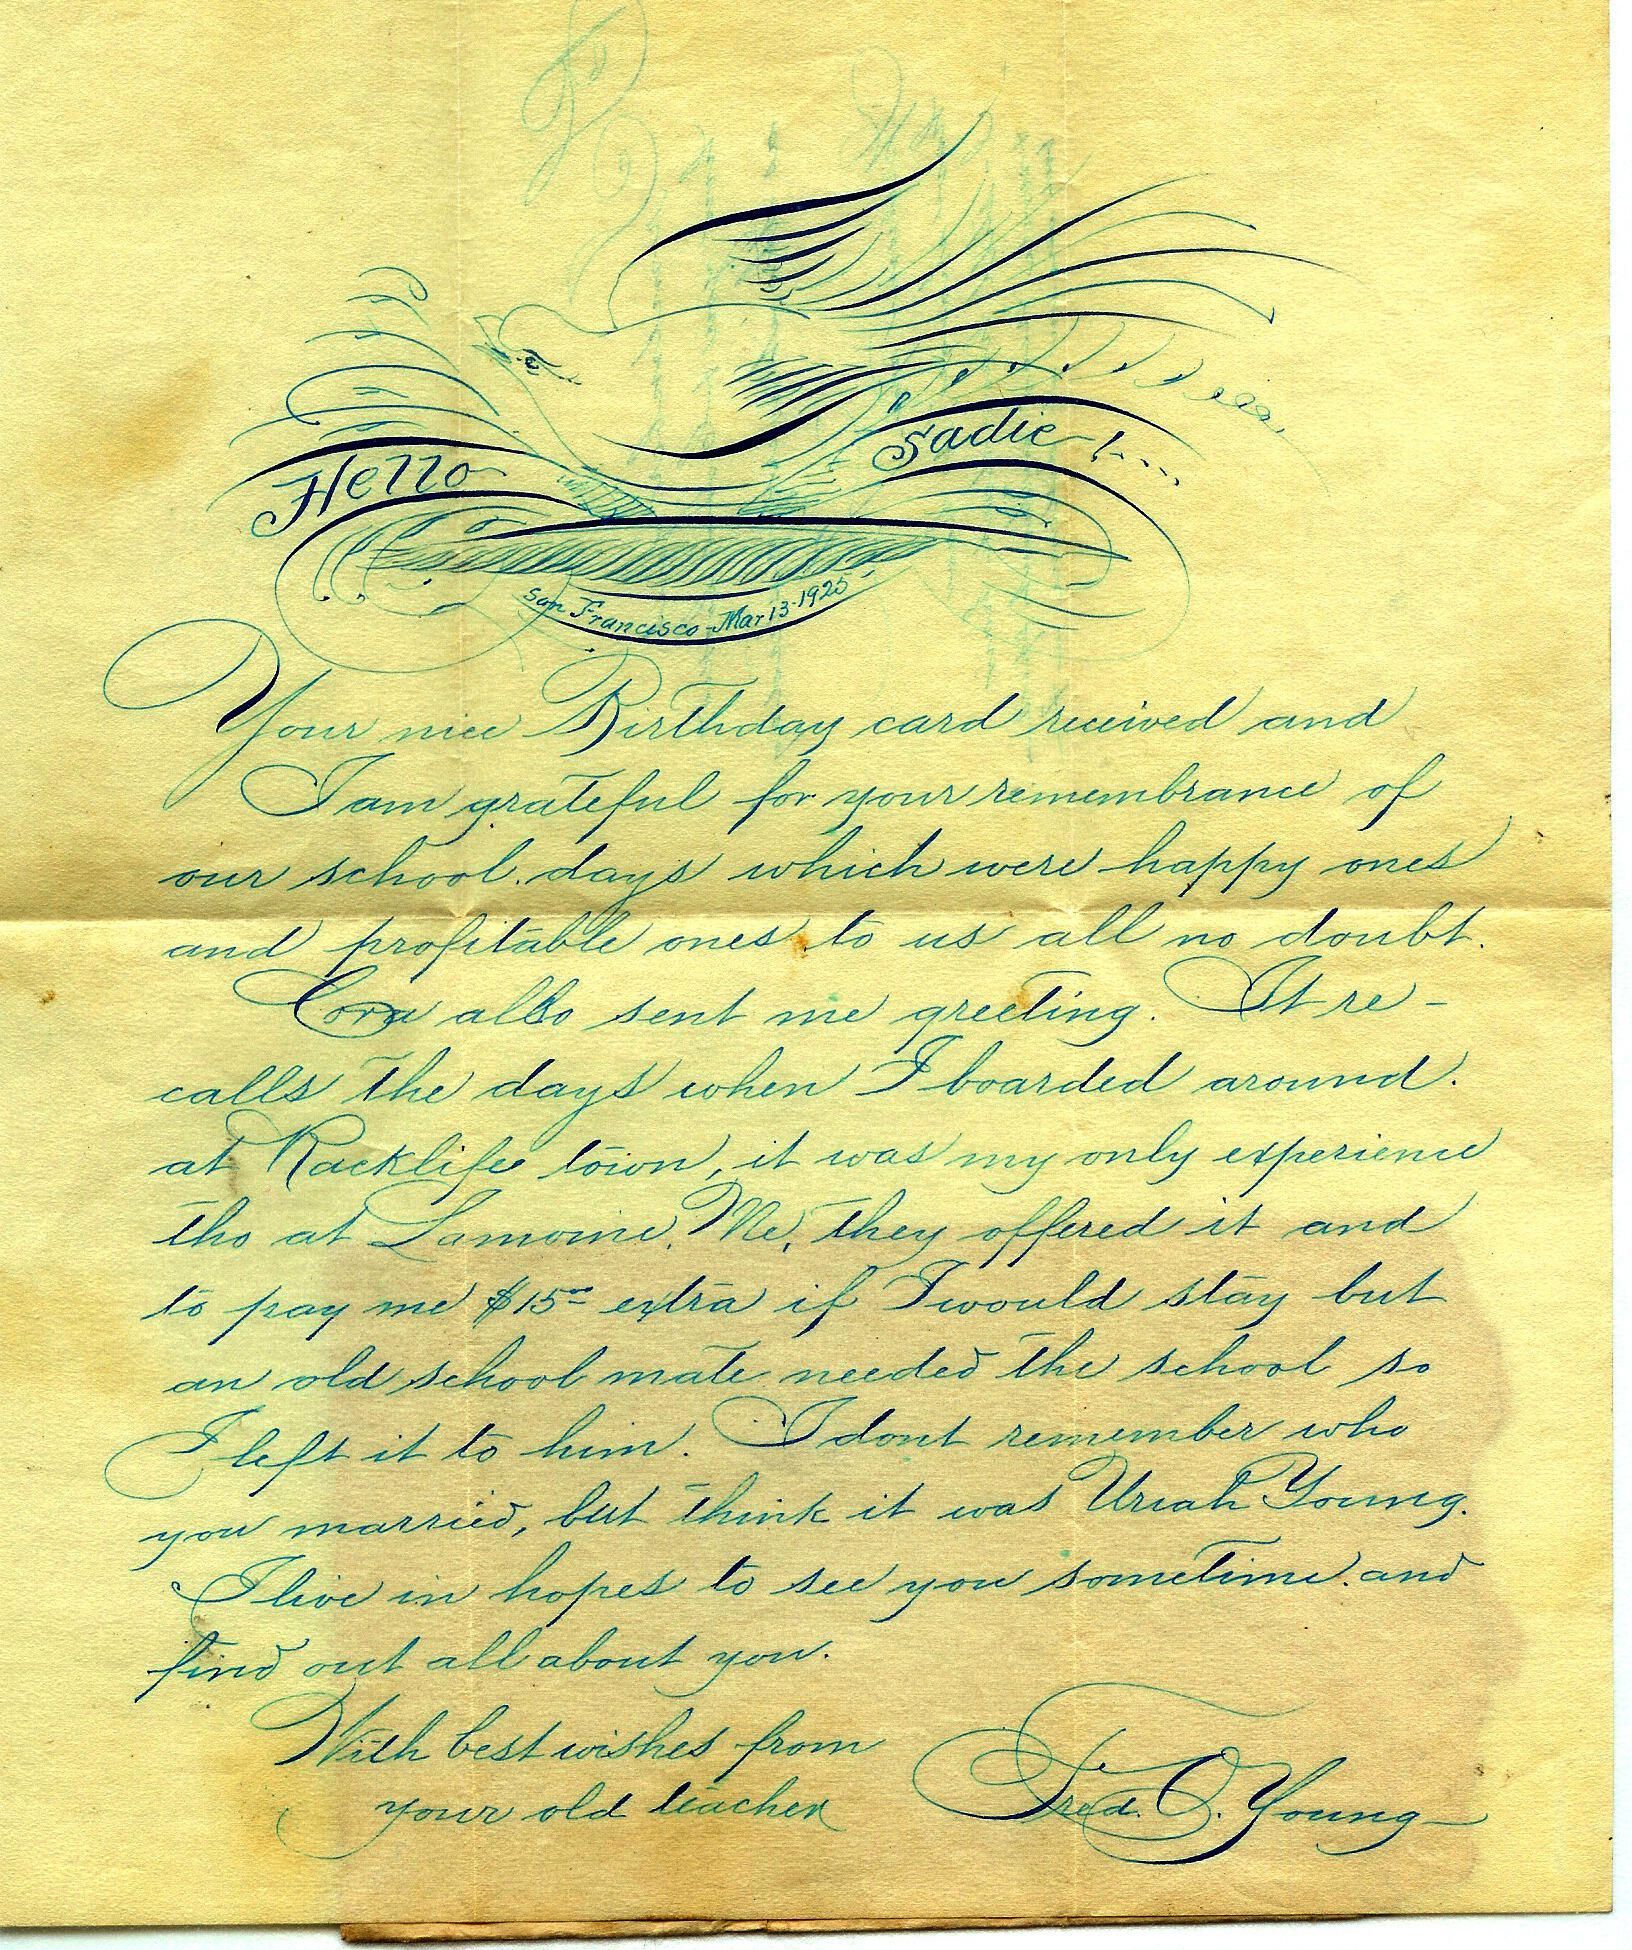 Hello Sadie-!----
San Francisco-Mar 13-1925-
Your nice Birthday card received and
I am grateful for your remembrance of
our school days which were happy ones
and profitable ones to us all no doubt.
Cora also sent me greeting. It re-
calls the days when I boarded around.
at Racklife town, it was my only experience
tho at Lamoine, Me, they offered it and
to pay me $15.00 extra if I would stay but
an old school mate needed the school so
I left it to him. I dont remember who
you married, but think it was Uriah Young.
I live in hopes to see you sometime and
find out all about you.
With best wishes from
your old teacher
Fred. O. Young